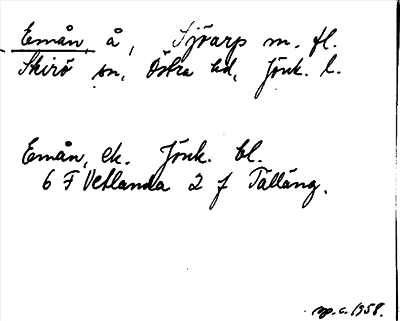 Emån, å, Sjöarp m. fl.
Skirö sn, Östra hd, Jönk. l.
Emån, ek. Jönk. bl.
6 F Vetlanda 2 f Tälläng.
sp. c. 1958.